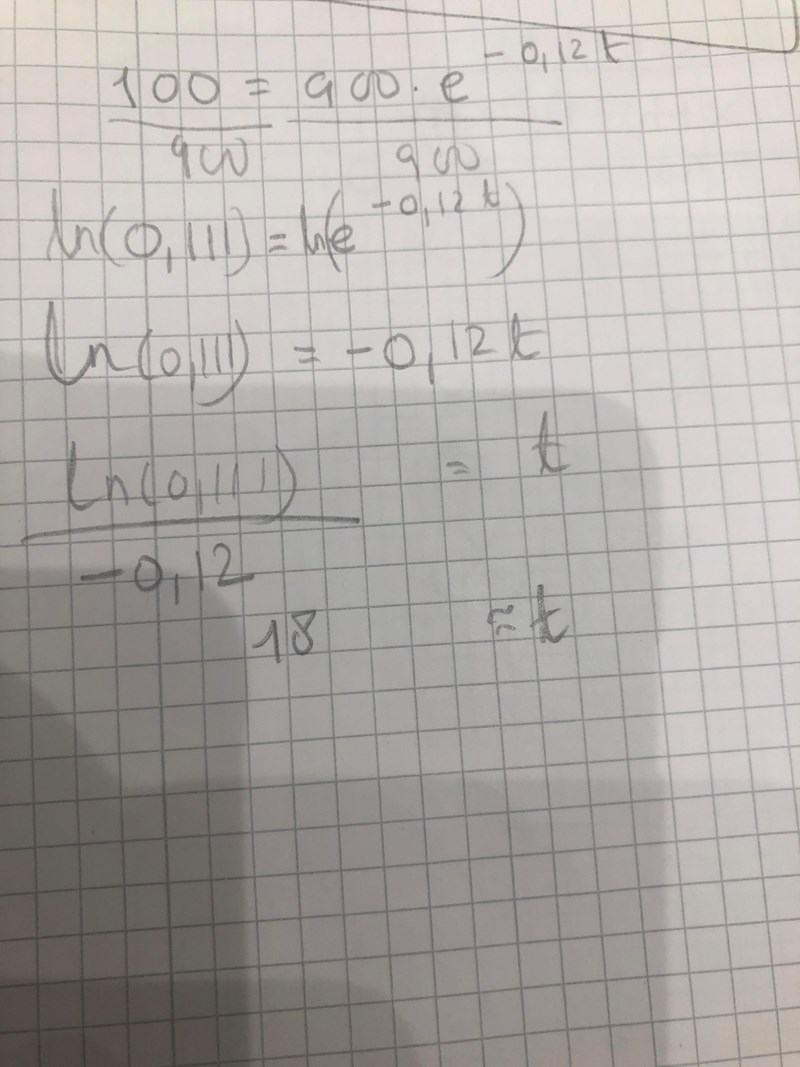 100 = 900 · e^-0,12t
900 900
ln(0,111) = ln(e^-0,12t)
ln(0,111) = -0,12t
ln(0,111) = t
-0,12
18 ≈ t